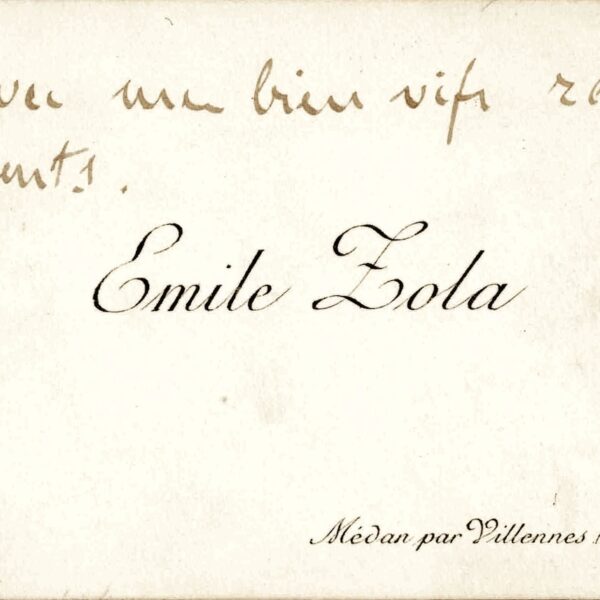 vec mes bien vifs re
ents.
Emile Zola
Médan par Villennes